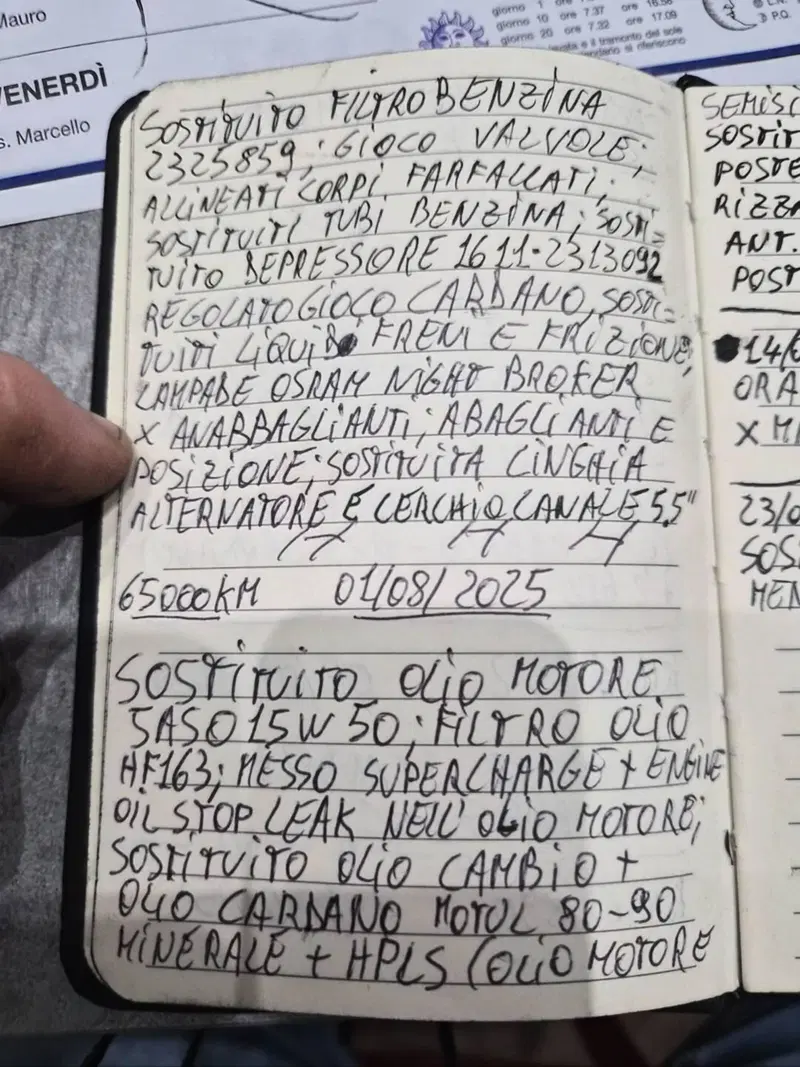 Mauro
VENERDÌ
s. Marcello
giorno 1 ore
giorno 10 ore 7.37 ore 16.58
giorno 20 ore 7.32 ore 17.09
e il tramonto del sole
si riferiscono
P.Q.
SOSTITUITO FILTRO BENZINA
2325859; GIOCO VALVOLE;
ALLINEATI CORPI FARFALLATI;
SOSTITUITI TUBI BENZINA; SOSTI=
TUITO DEPRESSIORE 1611-2313092
REGOLATO GIOCO CARDANO, SOSTI=
TUITI LIQUIDO FRENI E FRIZIONE,
LAMPADE OSRAM NIGHT BROKER
X ANABBAGLIANTI; ABAGLIANTI E
POSIZIONE; SOSTITUITA CINGHIA
ALTERNATORE E CERCHIO CANALE 5.5"
65000KM 01/08/2025
SOSTITUITO OLIO MOTORE
SASO 15W50; FILTRO OLIO
HF163; MESSO SUPERCHARGE + ENGINE
OIL STOP LEAK NELL'OLIO MOTORE;
SOSTITUITO OLIO CAMBIO +
OLIO CARDANO MOTUL 80-90
MINERALE + HPLS (OLIO MOTORE
SEMISI
SOSTIT
POSTE
RIZZA
ANT.
POST
14/0
ORA
X MA
23/0
SOS
MEN